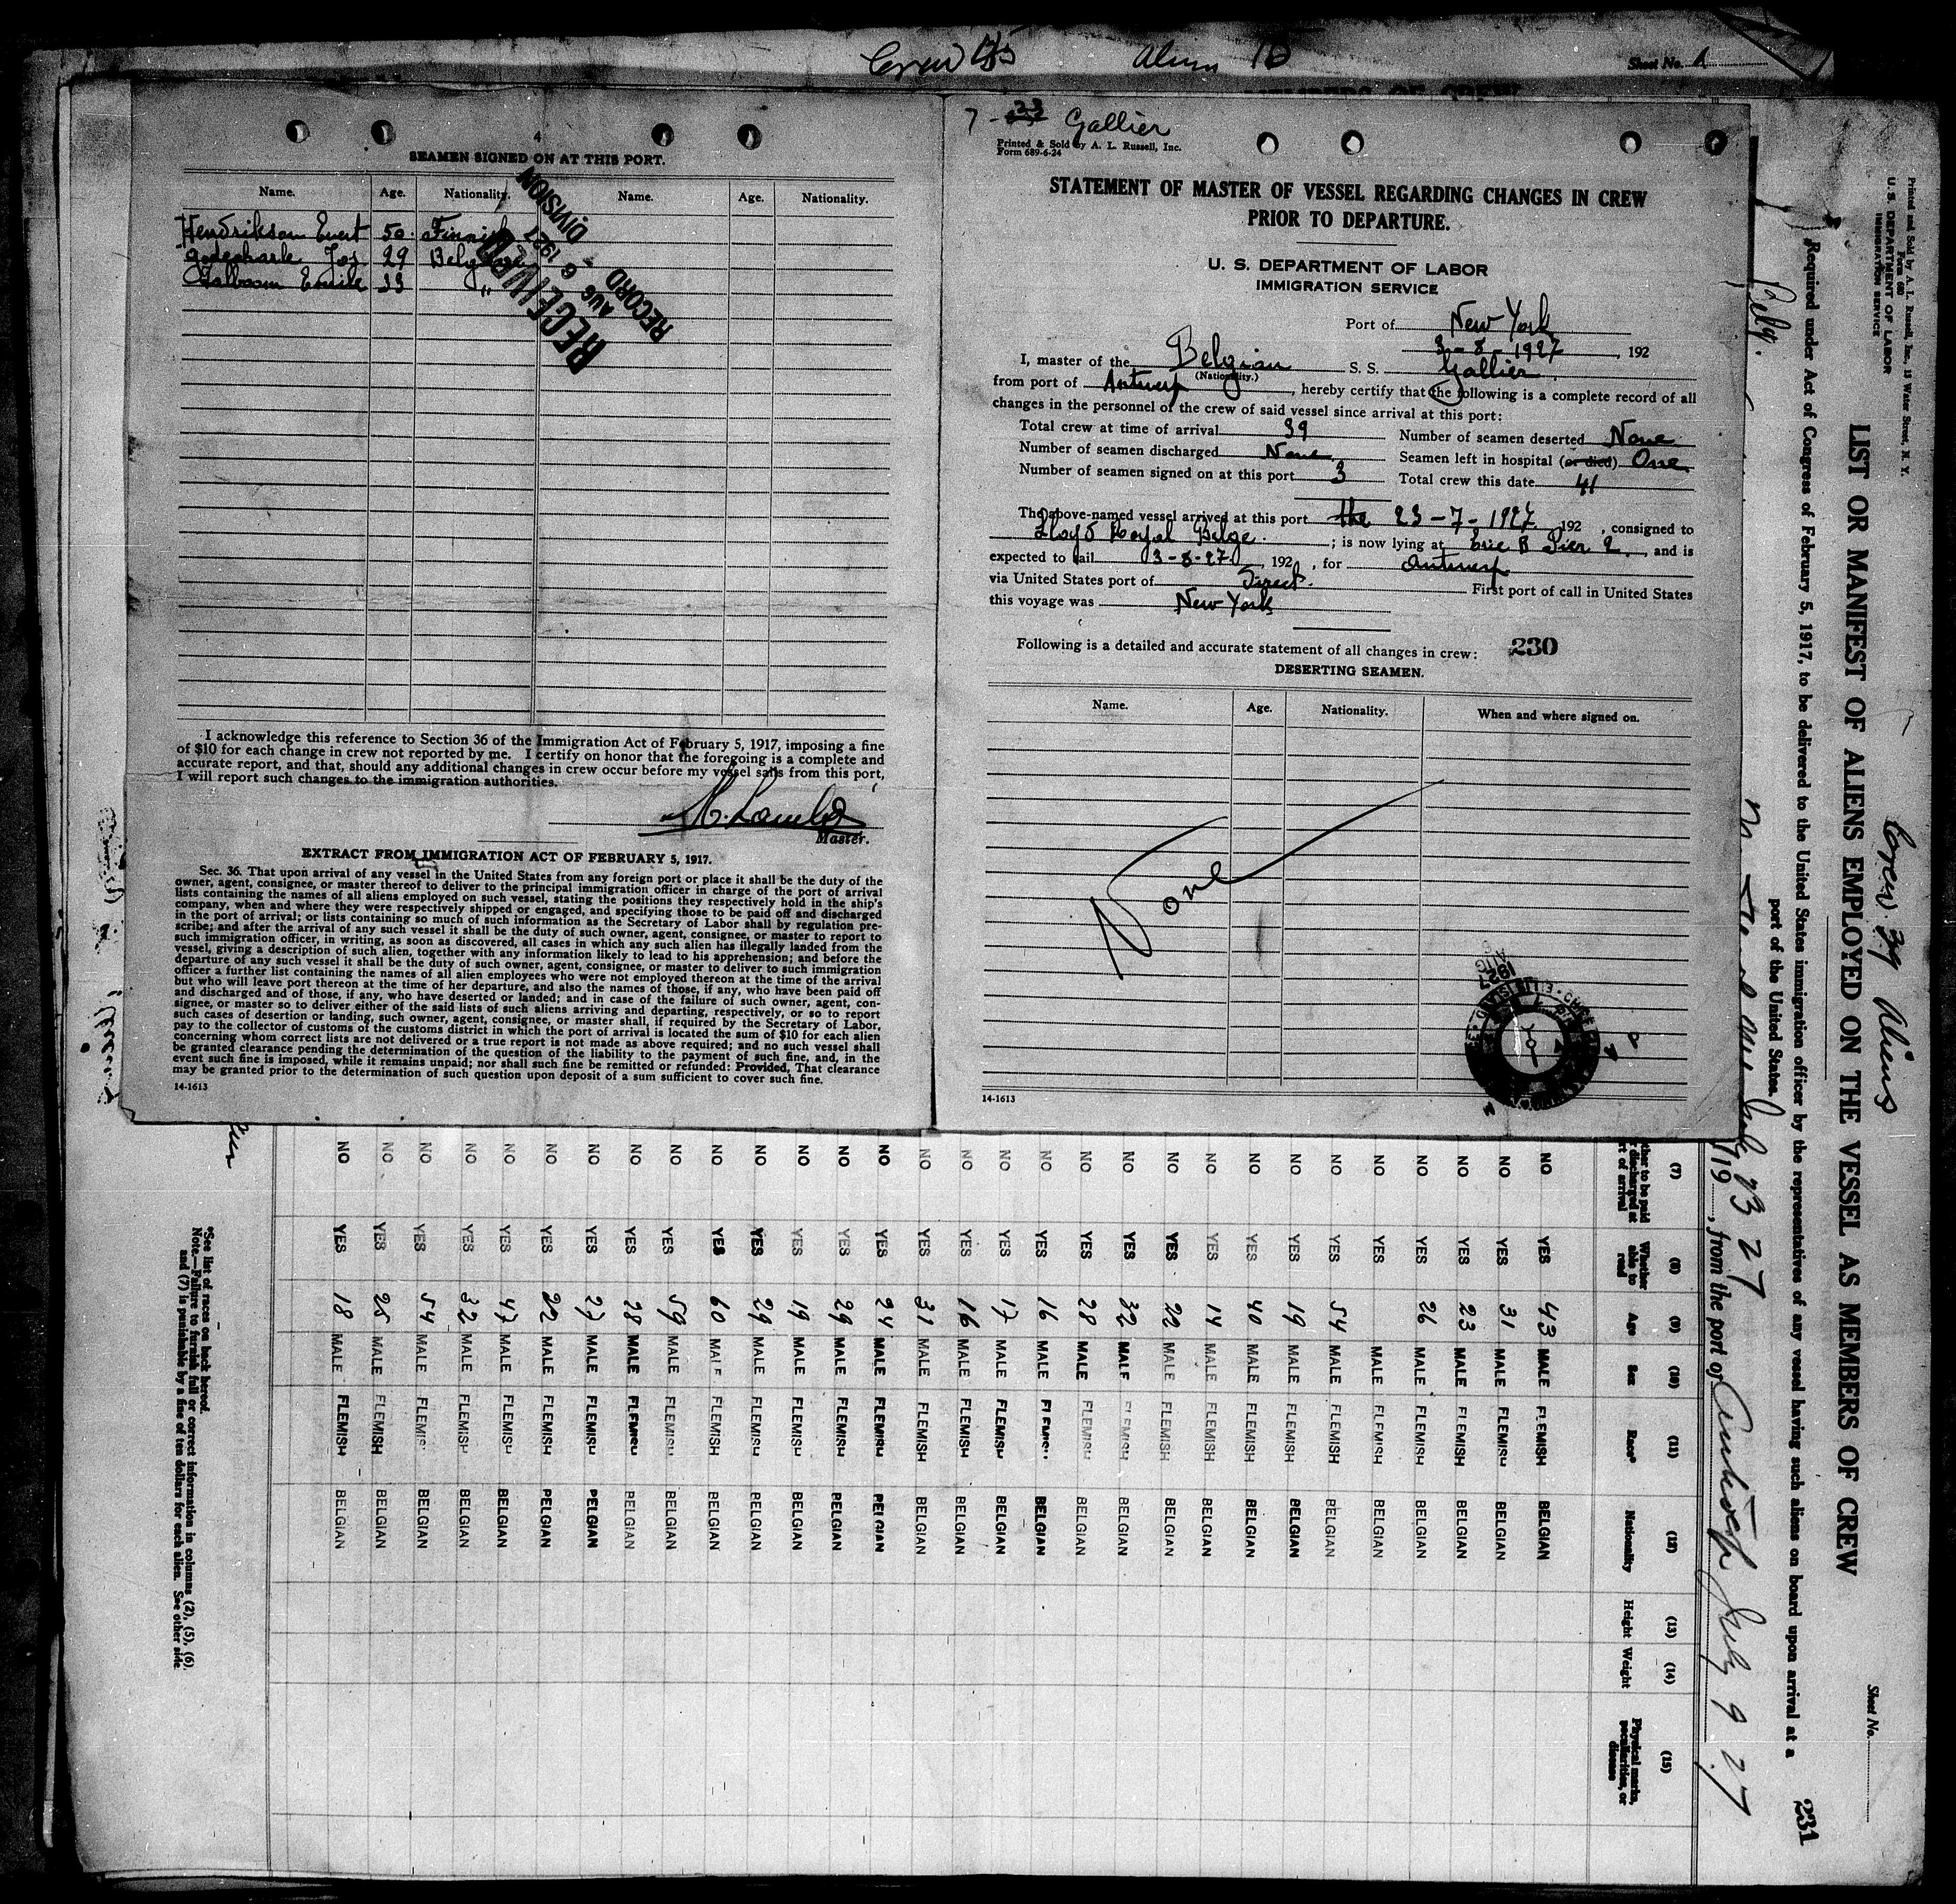 Crew 45 Aliens
Sheet No.
4
SEAMEN SIGNED ON AT THIS PORT.
Name. Age. Nationality. Name. Age. Nationality.
Hendrikson Evert 50. Finnish
Jos 29
Emile 33 "
RECEIVED
AUG 6 1927
RECORD DIVISION
I acknowledge this reference to Section 36 of the Immigration Act of February 5, 1917, imposing a fine
of $10 for each change in crew not reported by me. I certify on honor that the foregoing is a complete and
accurate report, and that, should any additional changes in crew occur before my vessel sails from this port,
I will report such changes to the immigration authorities.
Master.
EXTRACT FROM IMMIGRATION ACT OF FEBRUARY 5, 1917.
Sec. 36. That upon arrival of any vessel in the United States from any foreign port or place it shall be the duty of the
owner, agent, consignee, or master thereof to deliver to the principal immigration officer in charge of the port of arrival
lists containing the names of all aliens employed on such vessel, stating the positions they respectively hold in the ship's
company, when and where they were respectively shipped or engaged, and specifying those to be paid off and discharged
in the port of arrival; or lists containing so much of such information as the Secretary of Labor shall by regulation pre-
scribe; and after the arrival of any such vessel it shall be the duty of such owner, agent, consignee, or master to report to
such immigration officer, in writing, as soon as discovered, all cases in which any such alien has illegally landed from the
vessel, giving a description of such alien, together with any information likely to lead to his apprehension; and before the
departure of any such vessel it shall be the duty of such owner, agent, consignee, or master to deliver to such immigration
officer a further list containing the names of all alien employees who were not employed thereon at the time of the arrival
but who will leave port thereon at the time of her departure, and also the names of those, if any, who have been paid off
and discharged and of those, if any, who have deserted or landed; and in case of the failure of such owner, agent, con-
signee, or master so to deliver either of the said lists of such aliens arriving and departing, respectively, or so to report
such cases of desertion or landing, such owner, agent, consignee, or master shall, if required by the Secretary of Labor,
pay to the collector of customs of the customs district in which the port of arrival is located the sum of $10 for each alien
concerning whom correct lists are not delivered or a true report is not made as above required; and no such vessel shall
be granted clearance pending the determination of the question of the liability to the payment of such fine, and, in the
event such fine is imposed, while it remains unpaid; nor shall such fine be remitted or refunded: Provided, That clearance
may be granted prior to the determination of such question upon deposit of a sum sufficient to cover such fine.
14-1613
7-23 Gallier
Printed & Sold by A. L. Russell, Inc.
Form 689-6-24
STATEMENT OF MASTER OF VESSEL REGARDING CHANGES IN CREW
PRIOR TO DEPARTURE.
U. S. DEPARTMENT OF LABOR
IMMIGRATION SERVICE
Port of New York
3-8-1927, 192
I, master of the Belgian S. S. Gallier
(Nationality.)
from port of Antwerp, hereby certify that the following is a complete record of all
changes in the personnel of the crew of said vessel since arrival at this port:
Total crew at time of arrival 39 Number of seamen deserted None
Number of seamen discharged None Seamen left in hospital (or died) One
Number of seamen signed on at this port 3 Total crew this date 41
The above-named vessel arrived at this port the 23-7-1927 192 , consigned to
Lloyd Royal Belge ; is now lying at Erie B Pier 2, and is
expected to sail 3-8-27, 192 , for Antwerp
via United States port of Direct. First port of call in United States
this voyage was New York
Following is a detailed and accurate statement of all changes in crew: 230
DESERTING SEAMEN.
Name. Age. Nationality. When and where signed on.
None
14-1613
Printed and Sold by A. L. Russell, Inc., 13 Water Street, N. Y.
Form 680
U. S. DEPARTMENT OF LABOR
IMMIGRATION SERVICE
Crew 39 Aliens
Sheet No.
LIST OR MANIFEST OF ALIENS EMPLOYED ON THE VESSEL AS MEMBERS OF CREW
231
Required under Act of Congress of February 5, 1917, to be delivered to the United States immigration officer by the representatives of any vessel having such aliens on board upon arrival at a
port of the United States.
Belg.
July 23 27
19 , from the port of Antwerp July 9 27
(7) (8) (9) (10) (11) (12) (13) (14) (15)
Whether able to read Age Sex Race* Nationality Height Weight Physical marks, peculiarities, or disease
NO YES 43 MALE FLEMISH BELGIAN
NO YES 31 MALE FLEMISH BELGIAN
NO YES 23 MALE FLEMISH BELGIAN
NO YES 26 MALE FLEMISH BELGIAN
NO YES MALE FLEMISH BELGIAN
NO YES 54 MALE FLEMISH BELGIAN
NO YES 19 MALE FLEMISH BELGIAN
NO YES 40 MALE FLEMISH BELGIAN
NO YES 14 MALE FLEMISH BELGIAN
NO YES 22 MALE FLEMISH BELGIAN
NO YES 32 MALE FLEMISH BELGIAN
NO YES 28 MALE FLEMISH BELGIAN
NO YES 16 MALE FLEMISH BELGIAN
NO YES 17 MALE FLEMISH BELGIAN
NO YES 16 MALE FLEMISH BELGIAN
NO YES 31 MALE FLEMISH BELGIAN
NO YES 24 MALE FLEMISH BELGIAN
NO YES 29 MALE FLEMISH BELGIAN
NO YES 19 MALE FLEMISH BELGIAN
NO YES 29 MALE FLEMISH BELGIAN
NO YES 60 MALE FLEMISH BELGIAN
NO YES 59 MALE FLEMISH BELGIAN
NO YES 28 MALE FLEMISH BELGIAN
NO YES 27 MALE FLEMISH BELGIAN
NO YES 22 MALE FLEMISH BELGIAN
NO YES 47 MALE FLEMISH BELGIAN
NO YES 32 MALE FLEMISH BELGIAN
NO YES 54 MALE FLEMISH BELGIAN
NO YES 25 MALE FLEMISH BELGIAN
NO YES 18 MALE FLEMISH BELGIAN
*See list of races on back hereof.
Note.—Failure to furnish full or correct information in columns (2), (5), (6),
and (7) is punishable by a fine of ten dollars for each alien. See other side